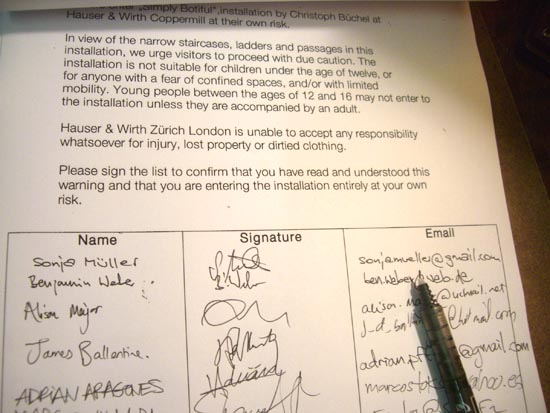 enter „Simply Botiful",installation by Christoph Büchel at
Hauser & Wirth Coppermill at their own risk.
In view of the narrow staircases, ladders and passages in this
installation, we urge visitors to proceed with due caution. The
installation is not suitable for children under the age of twelve, or
for anyone with a fear of confined spaces, and/or with limited
mobility. Young people between the ages of 12 and 16 may not enter to
the installation unless they are accompanied by an adult.
Hauser & Wirth Zürich London is unable to accept any responsibility
whatsoever for injury, lost property or dirtied clothing.
Please sign the list to confirm that you have read and understood this
warning and that you are entering the installation entirely at your own
risk.
Name Signature Email
Sonja Müller sonjamueller@gmail.com
Benjamin Weber ben.weber@web.de
Alison Major alison.
James Ballantine. @hotmail.com
adrian @gmail.com
ADRIAN ARAGONES
marcos